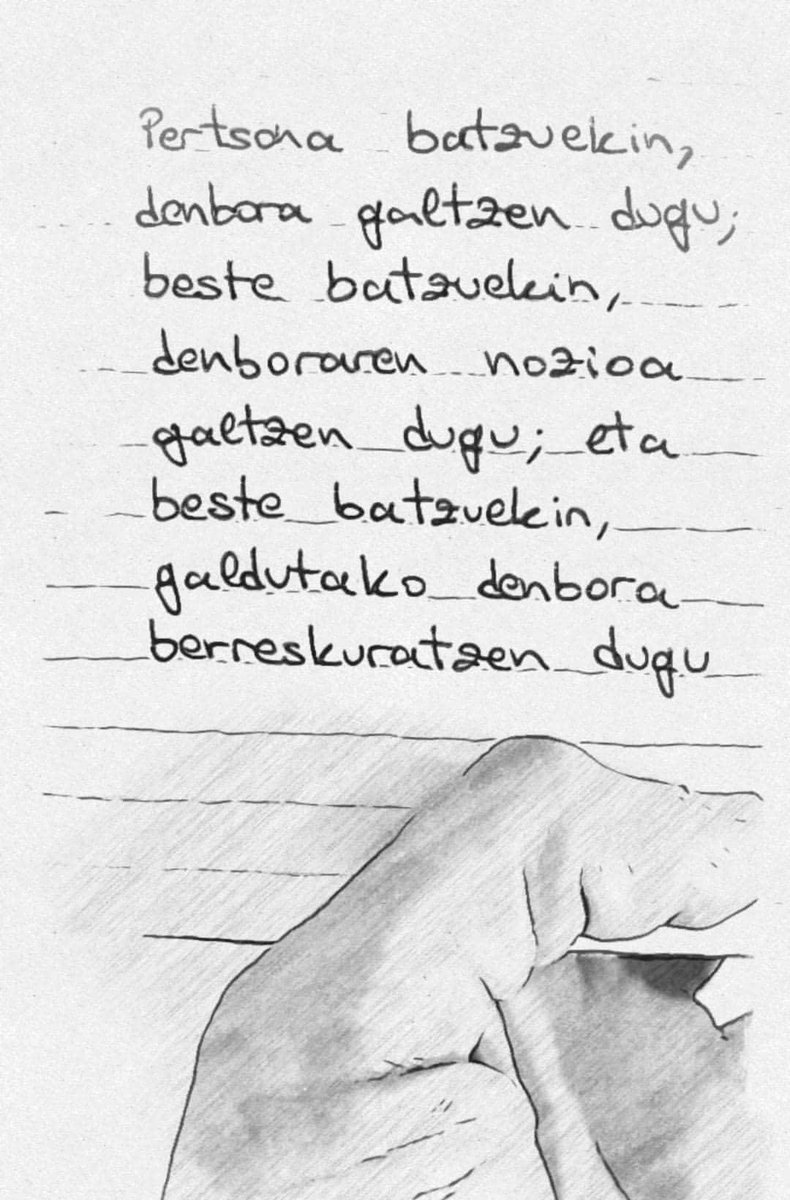 Pertsona batzuekin,
denbora galtzen dugu;
beste batzuekin,
denboraren nozioa
galtzen dugu; eta
beste batzuekin,
galdutako denbora
berreskuratzen dugu